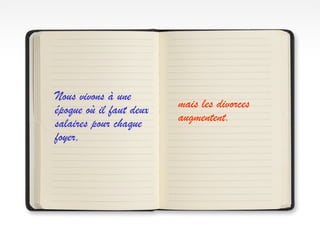 Nous vivons à une
époque où il faut deux
salaires pour chaque
foyer,
mais les divorces
augmentent.